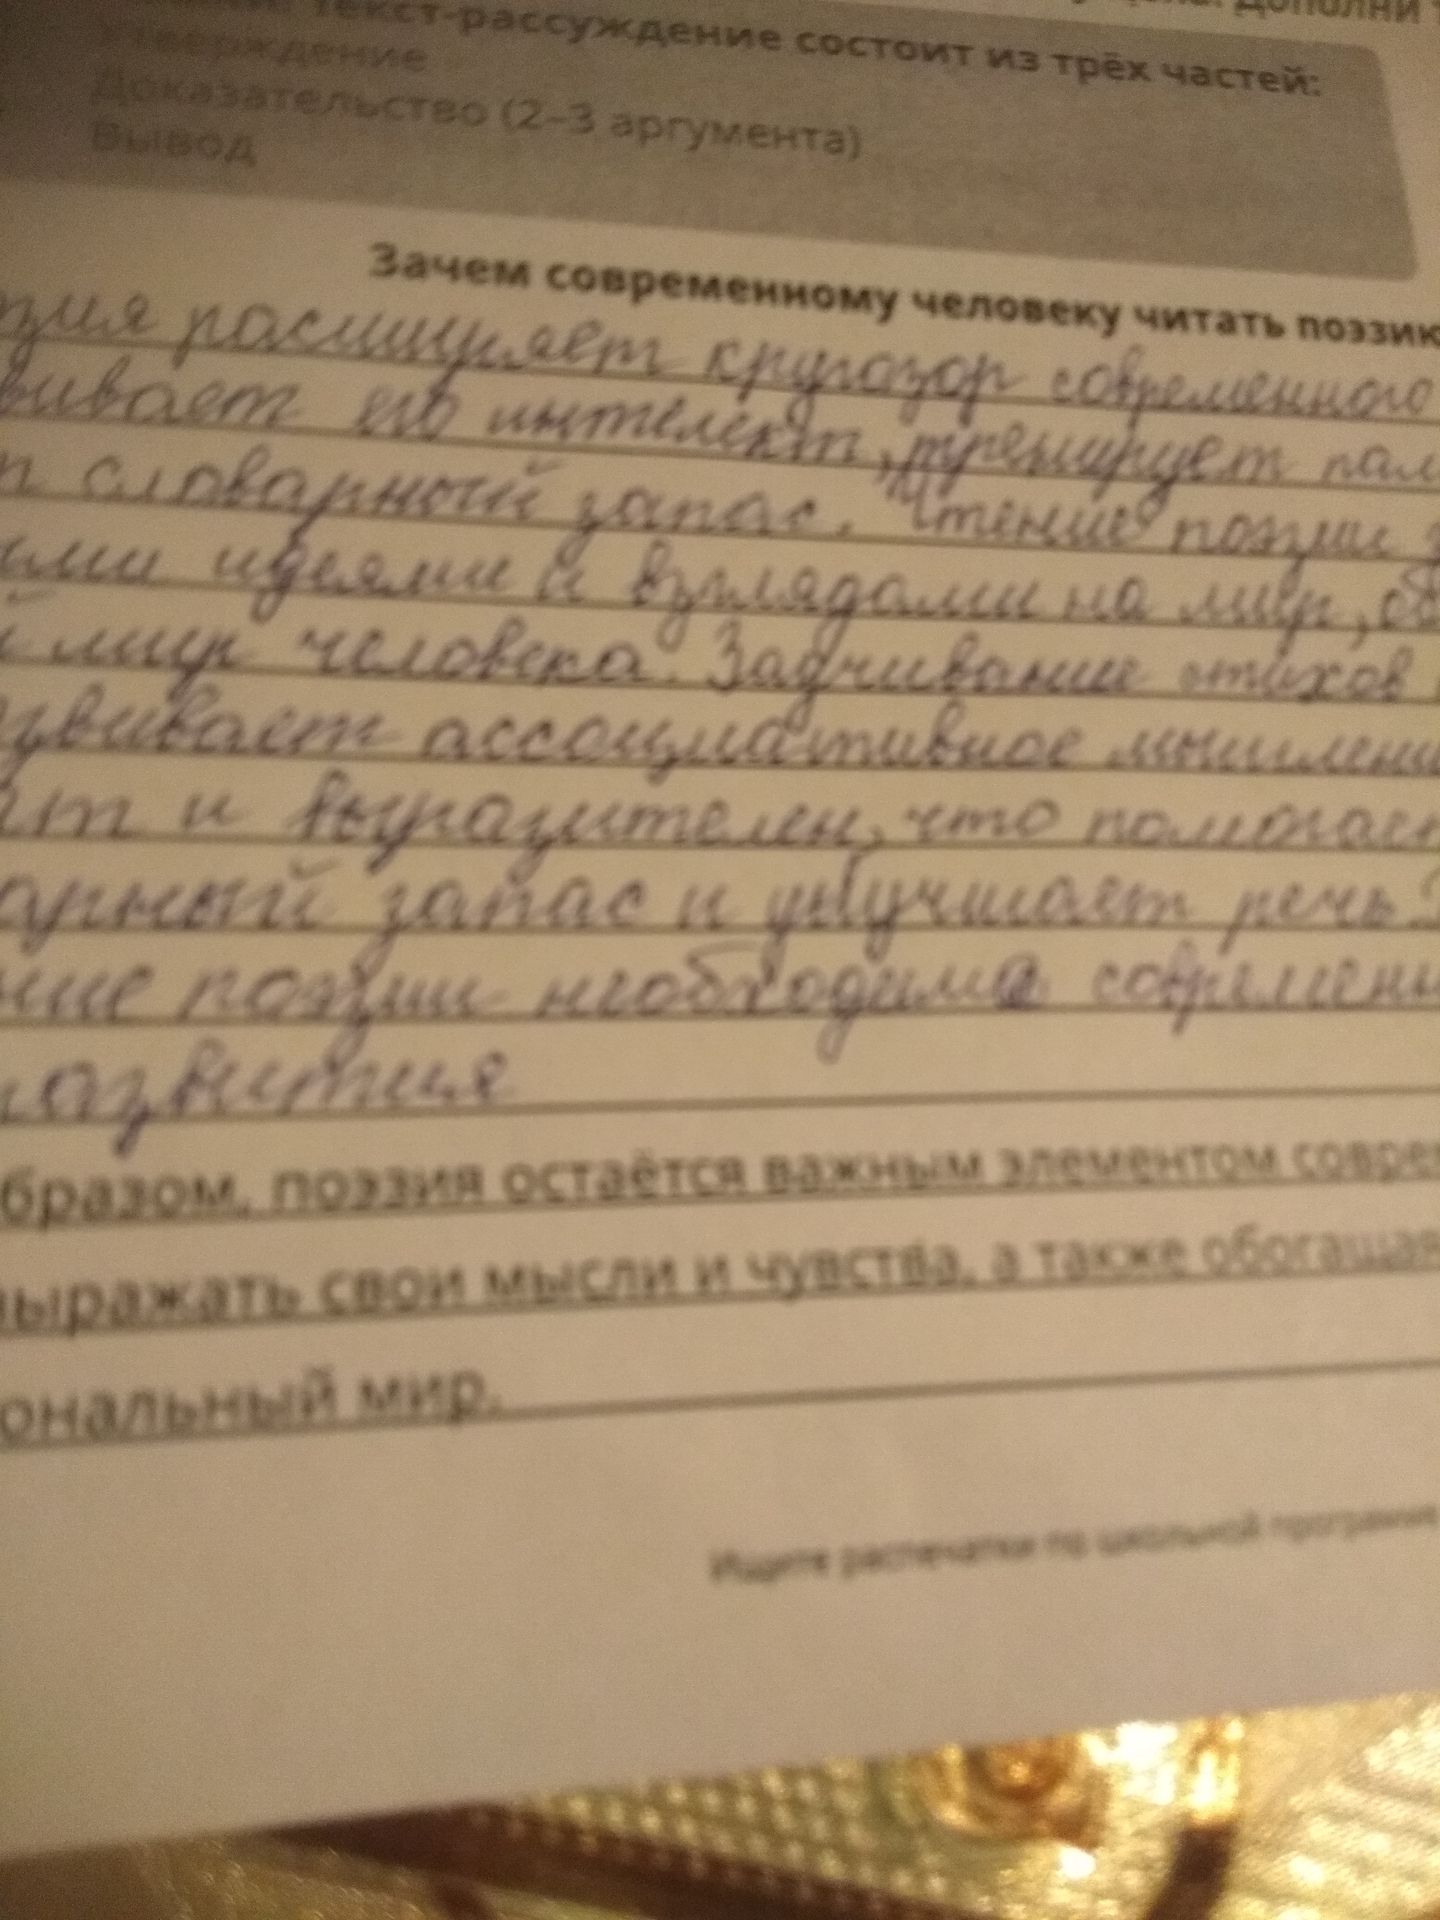 Дополни
текст-рассуждение состоит из трёх частей:
Утверждение
Доказательство (2–3 аргумента)
Вывод
Зачем современному человеку читать поэзию
зия расширяет кругозор современного
вивает его интелект, тренирует пам
т словарный запас. Чтение поэзии
ыми идеями и взглядами на мир, об
й мир человека. Заучивание стихов
азвивает ассоциативное мышлени
ат и выразителен, что помогает
арный запас и улучшает речь.
ние поэзии необходимо современ
развития
бразом, поэзия остаётся важным элементом совре
выражать свои мысли и чувства, а также обогащая
ональный мир.
Ищите распечатки по школьной программе